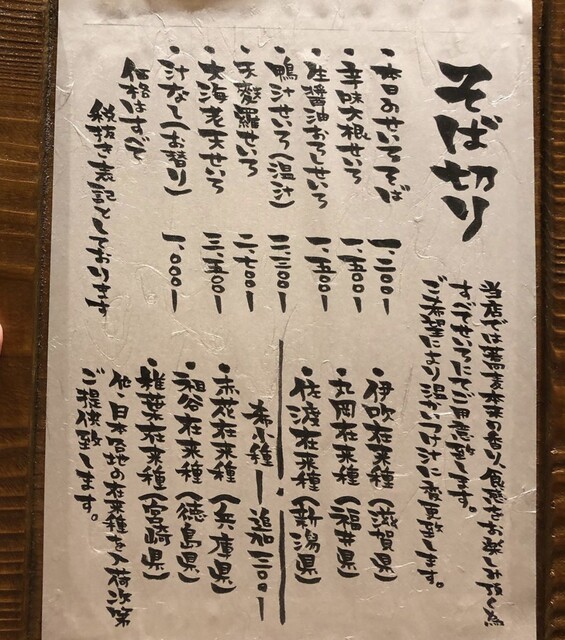 そば切り
当店では蕎麦本来の香り、食感をお楽しみ頂く為
すべてせいろにてご用意致します。
ご希望により温かいつけ汁に変更致します。
・本日おせいろそば 一、二〇〇ー
・辛味大根せいろ 一、五〇〇ー
・生醤油おろしせいろ 一、五〇〇ー
・鴨汁せいろ(温汁) 二、二〇〇ー
・天麩羅せいろ 二、七〇〇ー
・大海老天せいろ 三、五〇〇ー
・汁なし(お替り) 一、〇〇〇ー
価格はすべて
税抜き表記としております
・伊吹在来種(滋賀県)
・丸岡在来種(福井県)
・佐渡在来種(新潟県)
希少種ー追加二〇〇ー
・赤花在来種(兵庫県)
・祖谷在来種(徳島県)
・椎葉在来種(宮崎県)
他、日本各地の在来種を入荷次第
ご提供致します。